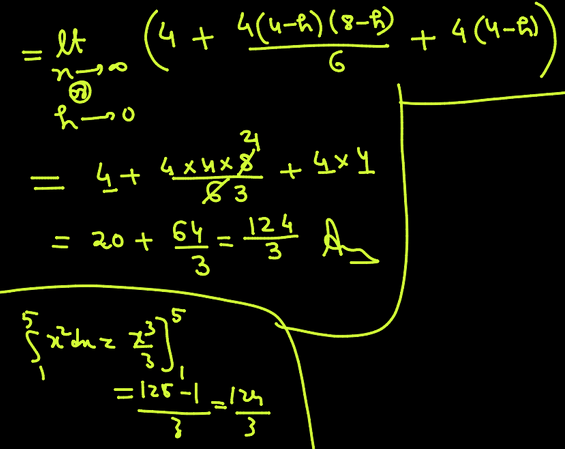 = lt (4 + 4(4-h)(8-h)/6 + 4(4-h))
n→∞
or
h→0
= 4 + 4×4×8̸ 4/6̸ 3 + 4×4
= 20 + 64/3 = 124/3 Ans
∫₁⁵ x²dx = x³/3]₁⁵
= 125-1/3 = 124/3